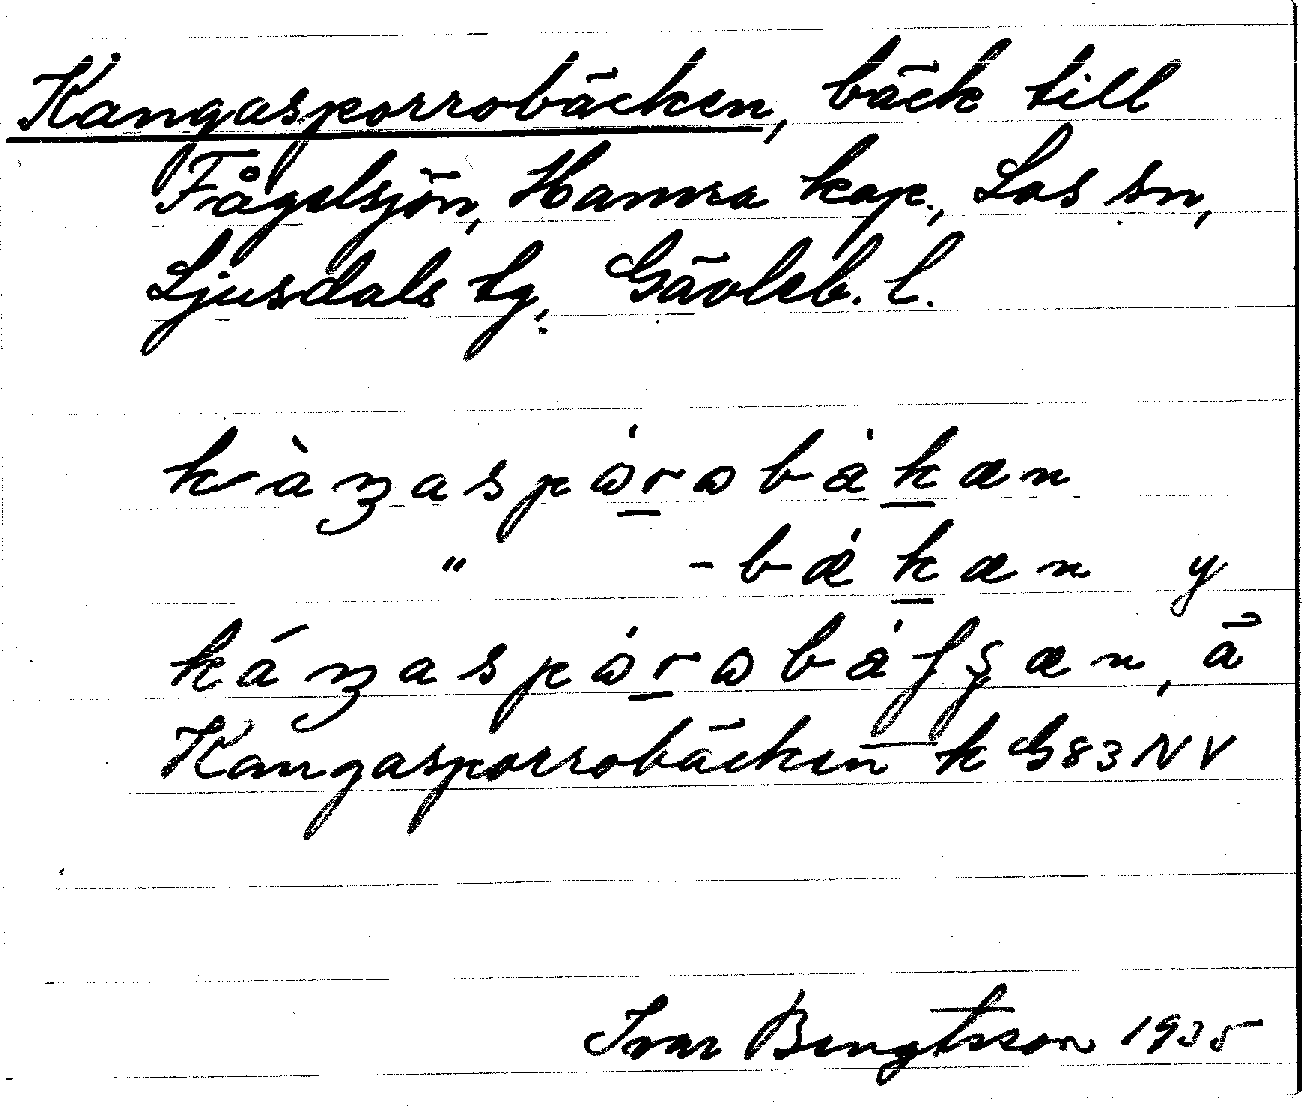 Kangasporrobäcken, bäck till
Fågelsjön, Hamra kap., Los sn,
Ljusdals tg, Gävleb. l.
kàŋaspɷ́rɷbǻkæn
" -bǽkæn y
káŋaspɷ́rɷbǻʃʂæn, ä
Kangasporrobäcken k G83NV
Ivar Bengtsson 1935